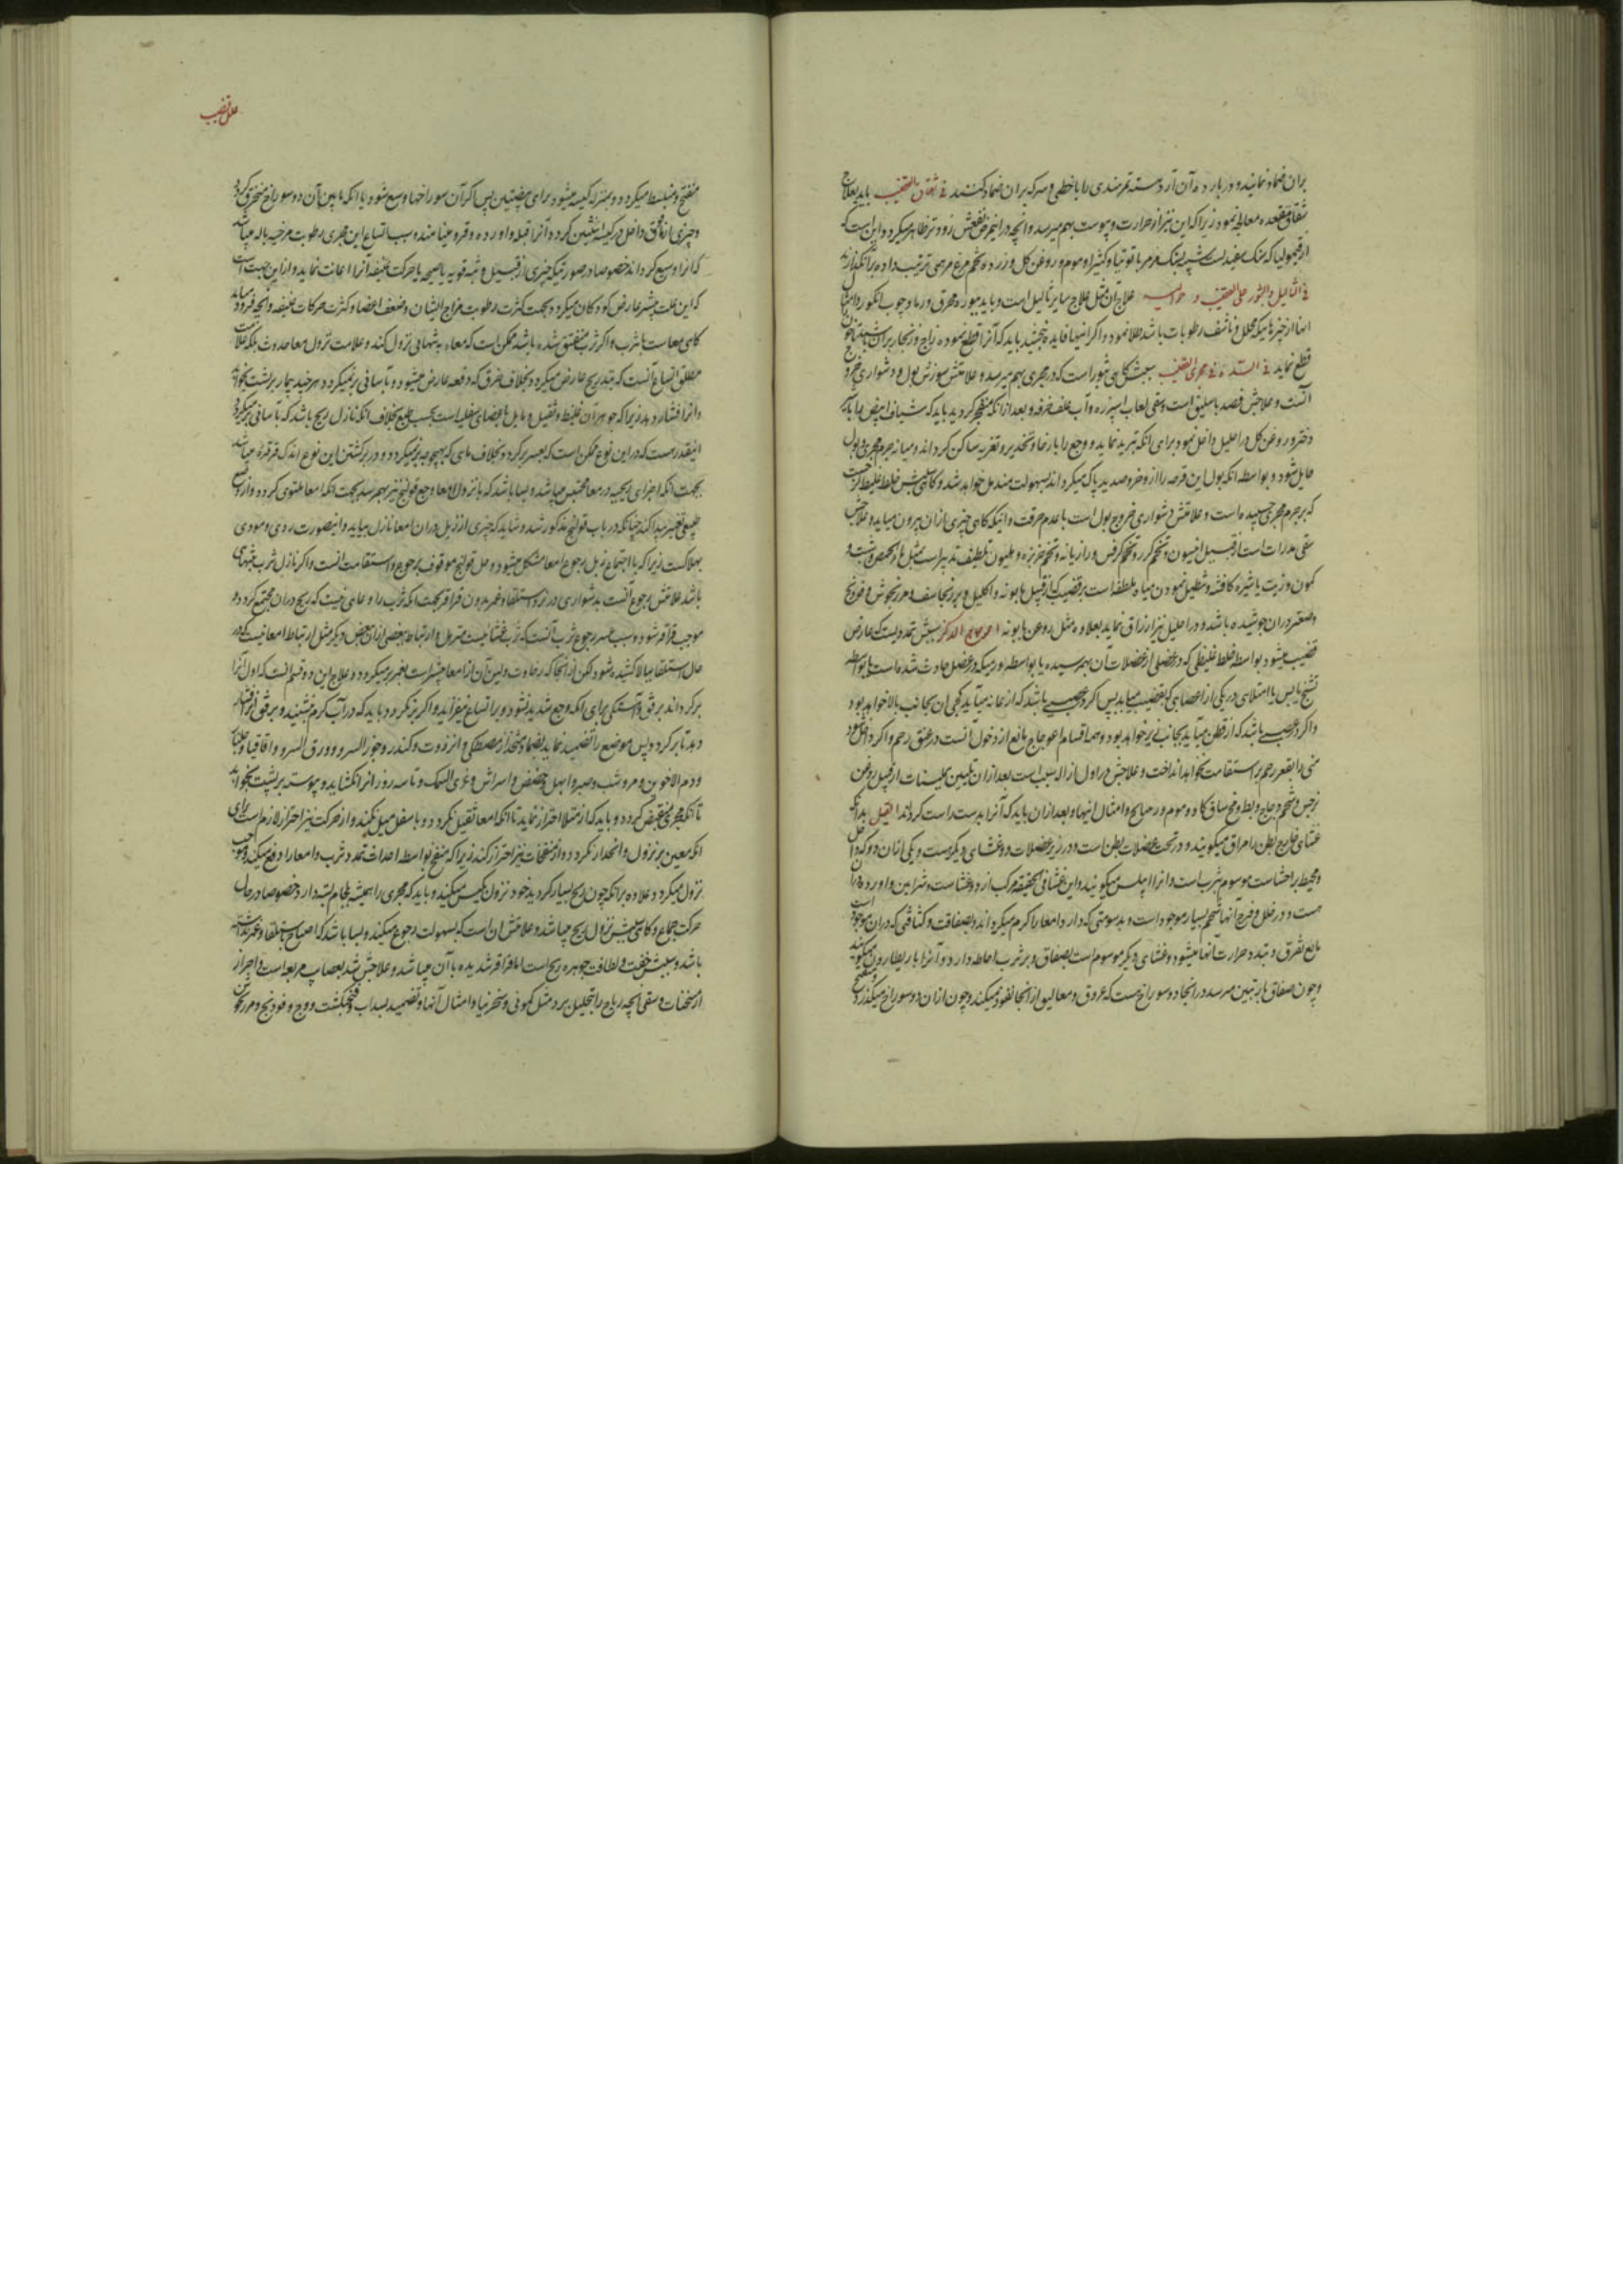 بران ضماد نمایند و در بارده آن آرد دسته ترمندی را با خطمی و سرکه بران ضماد کنند فی شقاق القضیب باید بعلاج
شقاق مقعده معالجه نمود زیرا که این نیز از حرارت و یبوست بهم میرسد و آنچه در اینمرض نفعش زودتر ظاهر میگردد و این است که
از قیمولیا که سنگ سفیدیست شبیه بسنگ مرمر با توتیا و کثیرا و موم و روغن گل و زرده تخم مرغ مرهمی ترتیب داده
فی الثآلیل و البثور علی القضیب و حوالیه علاج آن مثل علاج سایر ثآلیل است و باید ببوره محرق و رماد چوب انگور
اینها از چیزهاییکه محلل و ناشف رطوبات باشد طلا نمود و اگر اینها فایده نبخشید باید که آنرا قطع نموده زاج و زنگار بران
قطع نماید فی السدة فی مجری القضیب سببش گاهی بثور است که در مجری بهم میرسد و علامتش سوزش بول و دشواری خروج
آنست و علاجش فصد باسلیق است و سقی لعاب اسپرزه و آب علف خرفه و بعد از آنکه منفجر گردید باید که شیاف ابیض را با شیر
دختر و روغن گل در احلیل داخل نمود برای آنکه تبرید نماید و وجع را بارخا و تخدیر و تغریه ساکن گرداند و میانه جرم مجری و بول
حایل شود و بواسطه آنکه بول این قرحه را از وضر و صدید پاک میگرداند بسهولت مندمل خواهد شد و گاهی سببش خلط غلیظ لزجیست
که بر جرم مجری چسپیده است و علامتش دشواری خروج بول است با عدم حرقت و اینکه گاهی چیزی از آن بیرون میاید و علاجش
سقی مدرات است از قبیل انیسون و تخم گزر و تخم کرفس و رازیانه و تخم خربزه و هلیون و تلطیف تدبیر است بمثل ماء الحمص و شبت و
کمون و زیت یا شیره کافشه و تنطیل نمودن میاه ملطفه است بر قضیب که از قبیل بابونه و اکلیل و برنجاسف و مرزنجوش و فودنج
و صعتر دران جوشیده باشد و در احلیل نیز انزراق نماید بعلاوه مثل روغن بابونه اعوجاج الذکر سببش تمددیست که عارض
قضیب میشود بواسطه خلط غلیظی که در عضلی از عضلات آن بهم رسیده یا بواسطه ورمیکه در عضل حادث شده است یا بواسطه
تشنج یابس یا امتلائی در یکی از اعصابی که بقضیب میاید پس اگر در عصبی باشد که از عانه میاید کجی آن بجانب بالا خواهد بود
و اگر در عصبی باشد که از قطن میاید بجانب زیر خواهد بود و همه اقسام اعوجاج مانع از دخول آنست در عنق رحم و اگر داخل شود
منی را بقعر رحم بر استقامت نخواهد انداخت و علاجش در اول ازاله سبب است بعد از ان تلیین بملینات از قبیل روغن
نرجس و شحم دجاج و بط و مخ ساق گاو و موم در حمام و امثال اینها و بعد از ان باید که آنرا بدست راست گرداند القیل بدانکه
غشای خارج بطن را مراق میگویند و در تحت عضلات بطن است و در زیر عضلات دو غشای دیگرست و یکی از ان دو که داخل
و محیط باحشاست موسوم بثرب است و آنرا ابیلس میگویند و این غشا فی الحقیقه مرکب از دو غشاست و شرائین و اورده
هست و در خلل و فرج آنها شحم بسیار موجود است و بدسومتی که دارد امعا را گرم میگرداند و بصفاقت و کثافتی که دران موجود است
مانع تفرق و تبدد حرارت آنها میشود و غشای دیگر موسوم است بصفاق و بر ثرب احاطه دارد و آنرا باریطارون میگویند
و چون صفاق باربیتین میرسد در انجا دو سوراخ هست که عروق و معالیق از آنجا نفوذ میکند و چون از ان دو سوراخ میگذرد
علل قضیب
منفتح و منبسط میگردد و بمنزله کیسه میشود برای بیضتین پس اگر آن سوراخها وسیع شود یا آنکه مابین آن دو سوراخ منخرق گردد
و چیزی از مافوق داخل در کیسه انثیین گردد آنرا قیله و ادره و قرو مینامند و سبب اتساع این مجری رطوبت مرخیه باله میباشد
که آنرا وسیع گرداند خصوصا در صورتیکه چیزی از قبیل وثبه قویه یا صیحه یا حرکت عنیفه آنرا اعانت نماید و ازین جهت است
که این علت بیشتر عارض کودکان میگردد بجهت کثرت رطوبت مزاج ایشان و ضعف اعضا و کثرت حرکات عنیفه و آنچه فرود میاید
گاهی معاست با ثرب و اگر ثرب منفتق شده باشد ممکن است که معا به تنهایی نزول کند و علامت نزول معا حدوث
مطلق اتساع آنست که بتدریج عارض میگردد بخلاف خرق که دفعه عارض میشود و بآسانی برنمیگردد هر چند بیمار بر پشت بخوابد
و آنرا فشار دهد زیرا که جوهر آن غلیظ و ثقیل و مایل باعضای سفلیه است بحسب طبع بخلاف آنکه نازل ریح باشد که بآسانی برمیگردد
اینقدر هست که در این نوع ممکن است که بعسر برگردد بخلاف مائی که بهیچوجه برنمیگردد و در برگشتن این نوع اندک قرقره میباشد
بجهت آنکه اجزای ریحیه در معا محتبس میباشد و بسا باشد که با نزول امعا وجع قولنج نیز بهم رسد بجهت آنکه امعا ملتوی گردد و از وضع
طبیعی تغییر پیدا کند چنانکه در باب قولنج مذکور شد و شاید که چیزی از زبل دران امعا نازل بیاید و اینصورت ردی و مودی
بهلاکست زیرا که با اجتماع زبل رجوع امعا مشکل میشود و حل قولنج موقوف بر رجوع و استقامت آنست و اگر نازل ثرب بتنهائی
باشد علامتش رجوع آنست بدشواری در نزد استلقا و غمز بدون قراقر بجهت آنکه ثرب را وعائی نیست که ریح دران مجتمع گردد و
موجب قراقر شود و سبب عسر رجوع ثرب آنست که ثرب غشائیست مترهل و ارتباط بعضی از ان ببعض دیگر مثل ارتباط امعا نیست که در
حال استلقا ببالا کشیده شود لکن از انجا که رخاوت و لین آن از امعا بیشتر است بغمز برمیگردد و علاج این دو قسم آنست که اول آنرا
برگرداند برفق و آهستگی برای آنکه وجع شدید نشود و بر اتساع نیفزاید و اگر برنگردد باید که در آب گرم نشیند و برفق آنرا فشار
دهد تا برگردد پس موضع را تضمید نماید بضماد متخذ از مصطکی و انزروت و کندر و جوز السرو و ورق السرو و اقاقیا و جلنار
و دم الاخوین و مر و شب و صبر و ابهل و حضض و اسراش و غری السمک و تا سه روز آنرا نگشاید و پیوسته بر پشت بخوابد
تا آنکه مجری منقبض گردد و باید که از امتلا احتراز نماید تا آنکه امعا ثقیل نگردد و باسفل میل نکند و از حرکت نیز احتراز لازم است برای
آنکه معین بر نزول و انحدار نگردد و از منفخات نیز احتراز کند زیرا که منفخ بواسطه احداث تمدد ثرب و امعا را دفع میکند و موجب
نزول میگردد علاوه بر آنکه چون ریح بسیار گردید خود نزول بکیس میکند و باید که مجری را همیشه بلجام بسته دارد خصوصا در حال
حرکت جماع و گاهی سببش نزول ریح میباشد و علامتش آن است که بسهولت رجوع میکند و بسا باشد که احتیاج باستلقا و غمز نداشته
باشد و سببش خفت و لطافت جوهره ریح است اما قراقر شدیده با آن میباشد و علاجش شد بعصابه مربعه است و احتراز
از منفخات و سقی آنچه ریاح را بتحلیل برد مثل کمونی و سنجرنیا و امثال آنها و تضمید بسداب و فنجنکشت و وج و فودنج و مرزنجوش